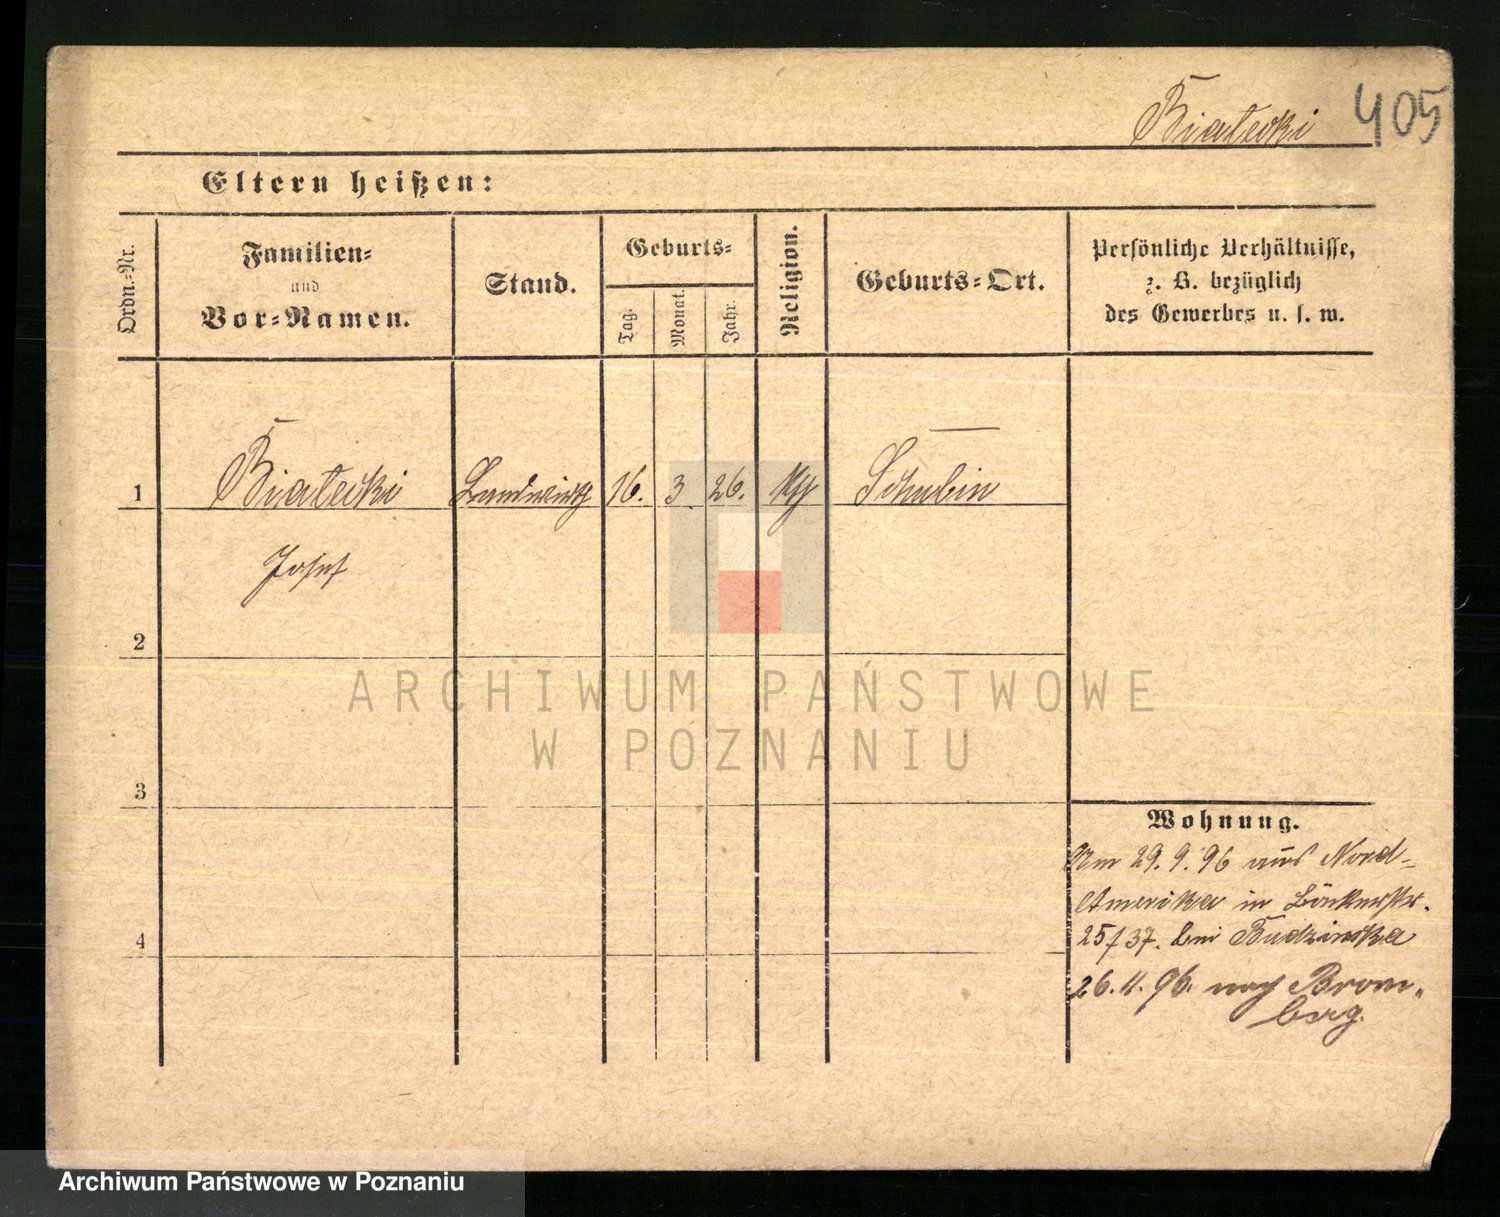 Białecki 405
Eltern heißen:
Ordn.-Nr.
Familien-
und
Vor-Namen.
Stand.
Geburts-
Tag.
Monat.
Jahr.
Religion.
Geburts-Ort.
Persönliche Verhältnisse,
z. B. bezüglich
des Gewerbes u. s. w.
1 Białecki Landwirth 16. 3. 26. Schubin
Josef
2
3
4
Wohnung.
Am 29.9.96 aus Nord-
Amerika in Bäckerstr.
25/37. bei Budzinska
26.11.96. nach Brom-
berg.
ARCHIWUM PAŃSTWOWE
W POZNANIU
Archiwum Państwowe w Poznaniu